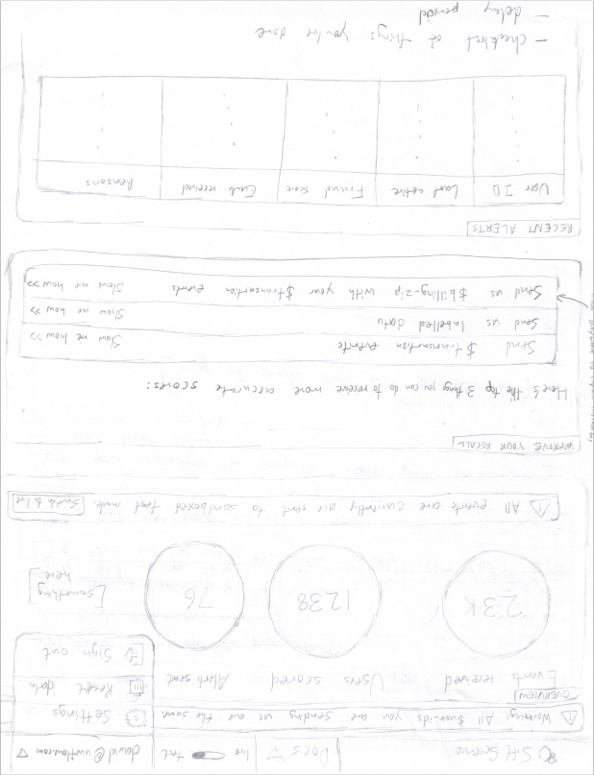 Sift Science
Docs ▽
live
test
david@uwflow.com ▽
⚠ Warning! All user-ids you are sending us are the same.
Settings
Reset data
Sign out
OVERVIEW
Events received
Users scored
Alerts sent
2.3K
1238
76
[something here]
⚠ All events are currently are sent to sandboxed test mode.
Switch to live
IMPROVE YOUR RECALL
Here's the top 3 things you can do to receive more accurate scores:
Send $transaction events
Show me how >>
Send us labelled data
Show me how >>
Send us $billing-zip with your $transaction events
Show me how >>
RECENT ALERTS
User ID
Last active
Fraud score
Events received
Reasons
- checklist of things you've done
- delay period